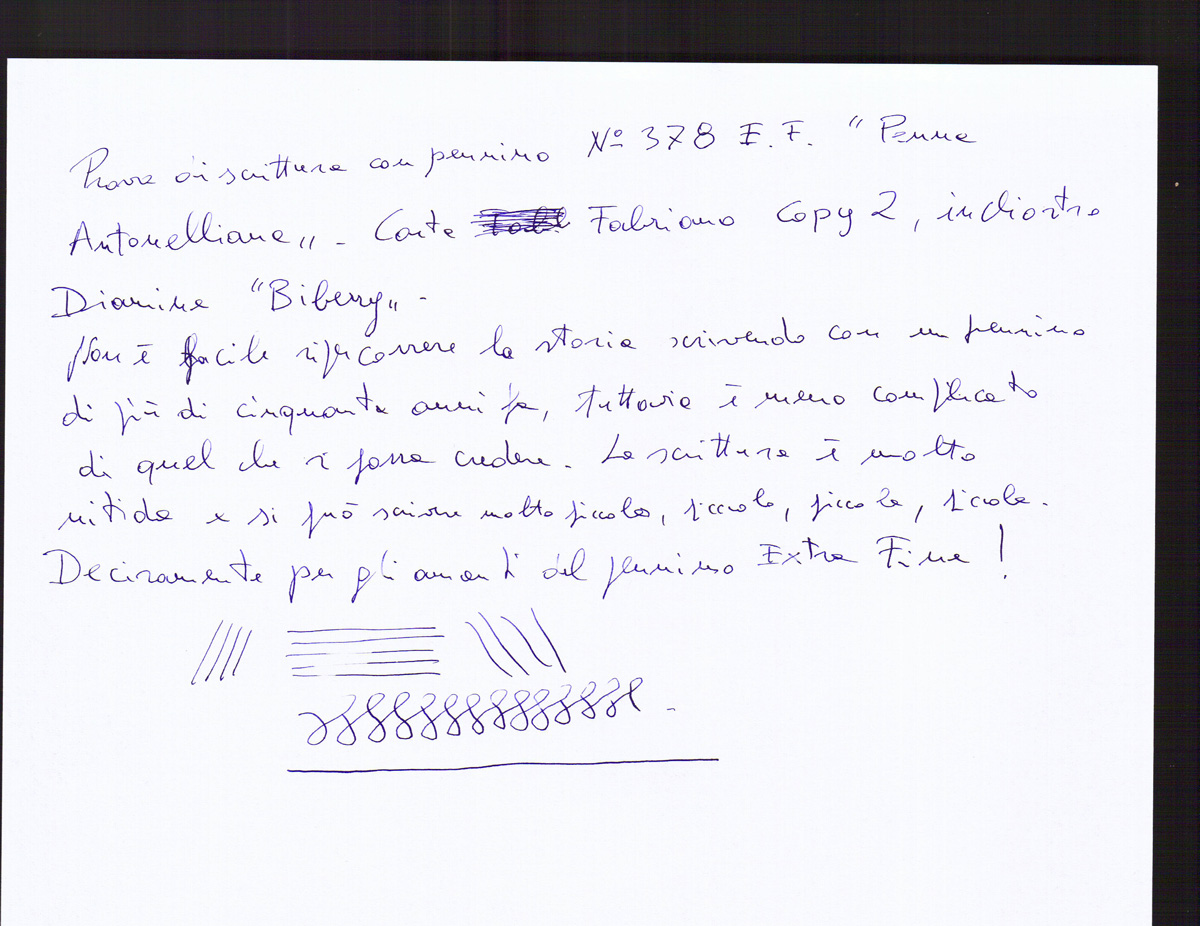 Prova di scrittura con pennino Nº 378 E.F. "Penna
Antonelliana„ - Carta Fabriano Copy 2, inchiostro
Diamine "Biberry„ -
Non è facile ripercorrere la storia scrivendo con un pennino
di più di cinquanta anni fa, tuttavia è meno complicato
di quel che si possa credere. La scrittura è molto
nitida e si può scrivere molto piccolo, piccolo, piccolo, piccolo.
Decisamente per gli amanti del pennino Extra Fine!